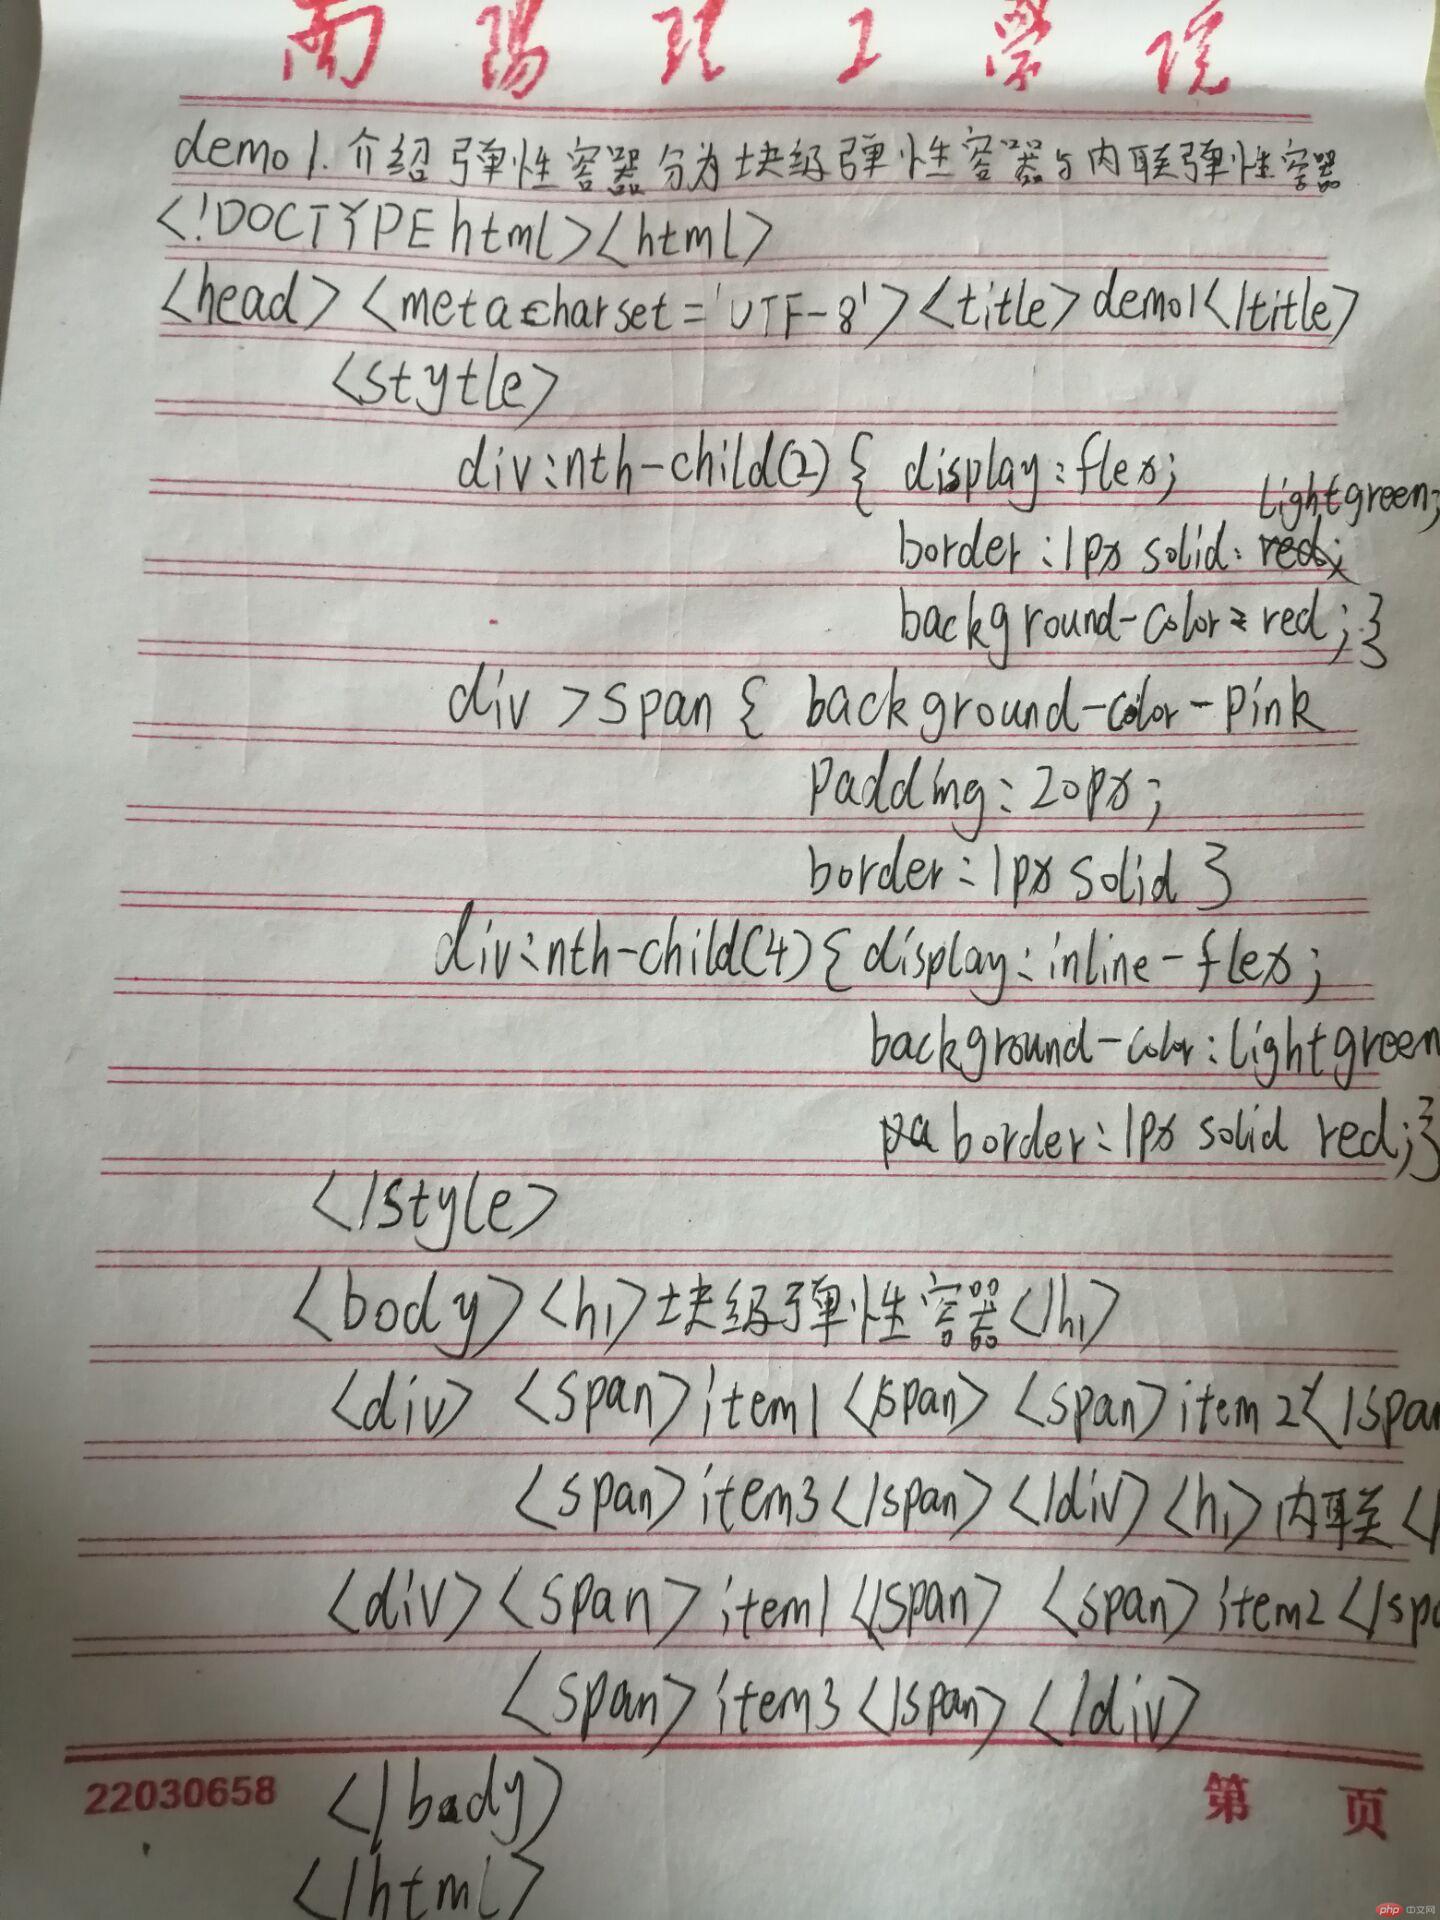 南陽理工學院
demo1.介绍弹性容器分为块级弹性容器与内联弹性容器
<!DOCTYPE html><html>
<head><meta charset='UTF-8'><title>demo1</title>
<stytle>
div:nth-child(2){ display:flex;
lightgreen;
border:1px solid: red;
background-color=red;}
div>span{ background-color-pink
padding:20px;
border:1px solid }
div:nth-child(4){display:inline-flex;
background-color:lightgreen
pa border:1px solid red;}
</style>
<body><h1>块级弹性容器</h1>
<div> <span>item1</span> <span>item2</span
<span>item3</span></div><h1>内联</
<div><span>item1</span> <span>item2</spa
<span>item3</span></div>
22030658 第 页
</body>
</html>
php 中文网